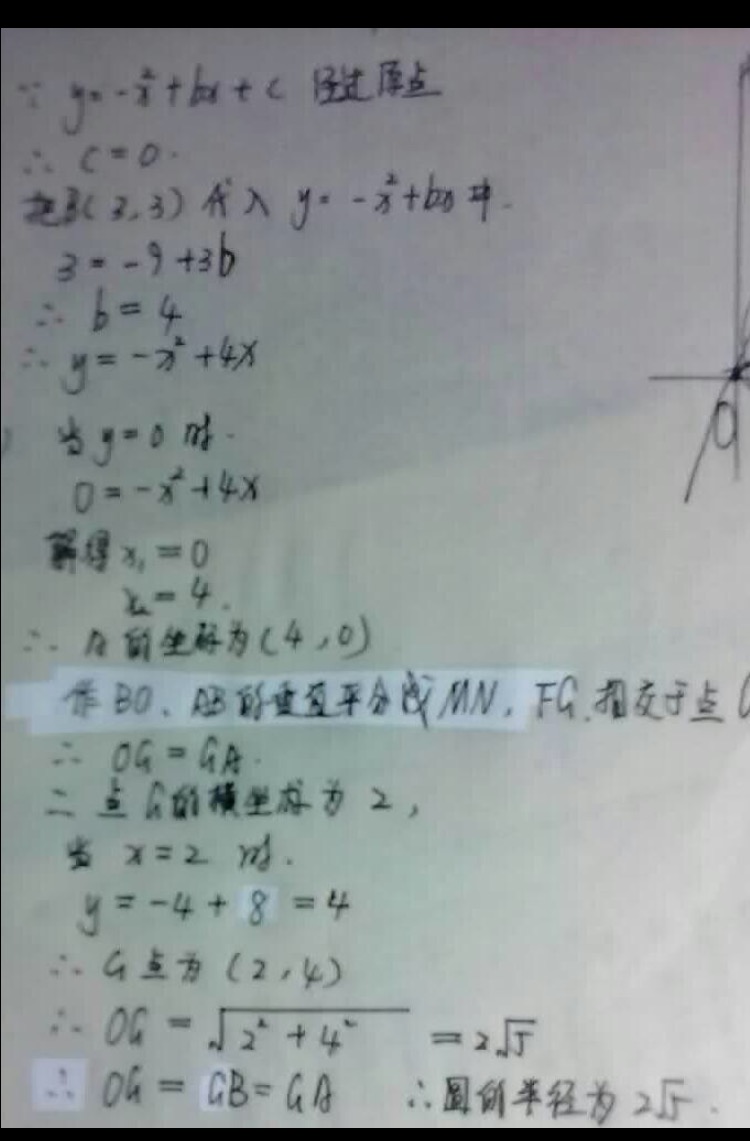 ∵ y=-x²+bx+c 经过原点
∴ c=0.
把B(3,3)代入 y=-x²+bx中.
3=-9+3b
∴ b=4
∴ y=-x²+4x
当y=0时.
0=-x²+4x
解得x₁=0
x₂=4.
∴ A的坐标为(4,0)
作BO、AB的垂直平分线MN,FG.相交于点G
∴ OG=GA.
∴ 点G的横坐标为2,
当 x=2 时.
y=-4+8=4
∴ G点为(2,4)
∴ OG=√(2²+4²) =2√5
∴ OG=GB=GA ∴圆的半径为2√5.
O